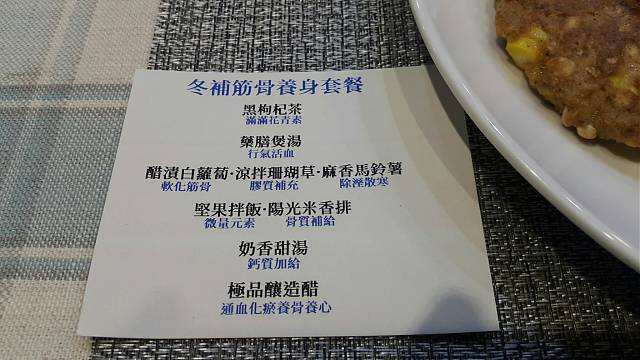 冬補筋骨養身套餐
黑枸杞茶
滿滿花青素
藥膳煲湯
行氣活血
醋漬白蘿蔔·涼拌珊瑚草·麻香馬鈴薯
軟化筋骨 膠質補充 除溼散寒
堅果拌飯·陽光米香排
微量元素 骨質補給
奶香甜湯
鈣質加給
極品釀造醋
通血化瘀養骨養心